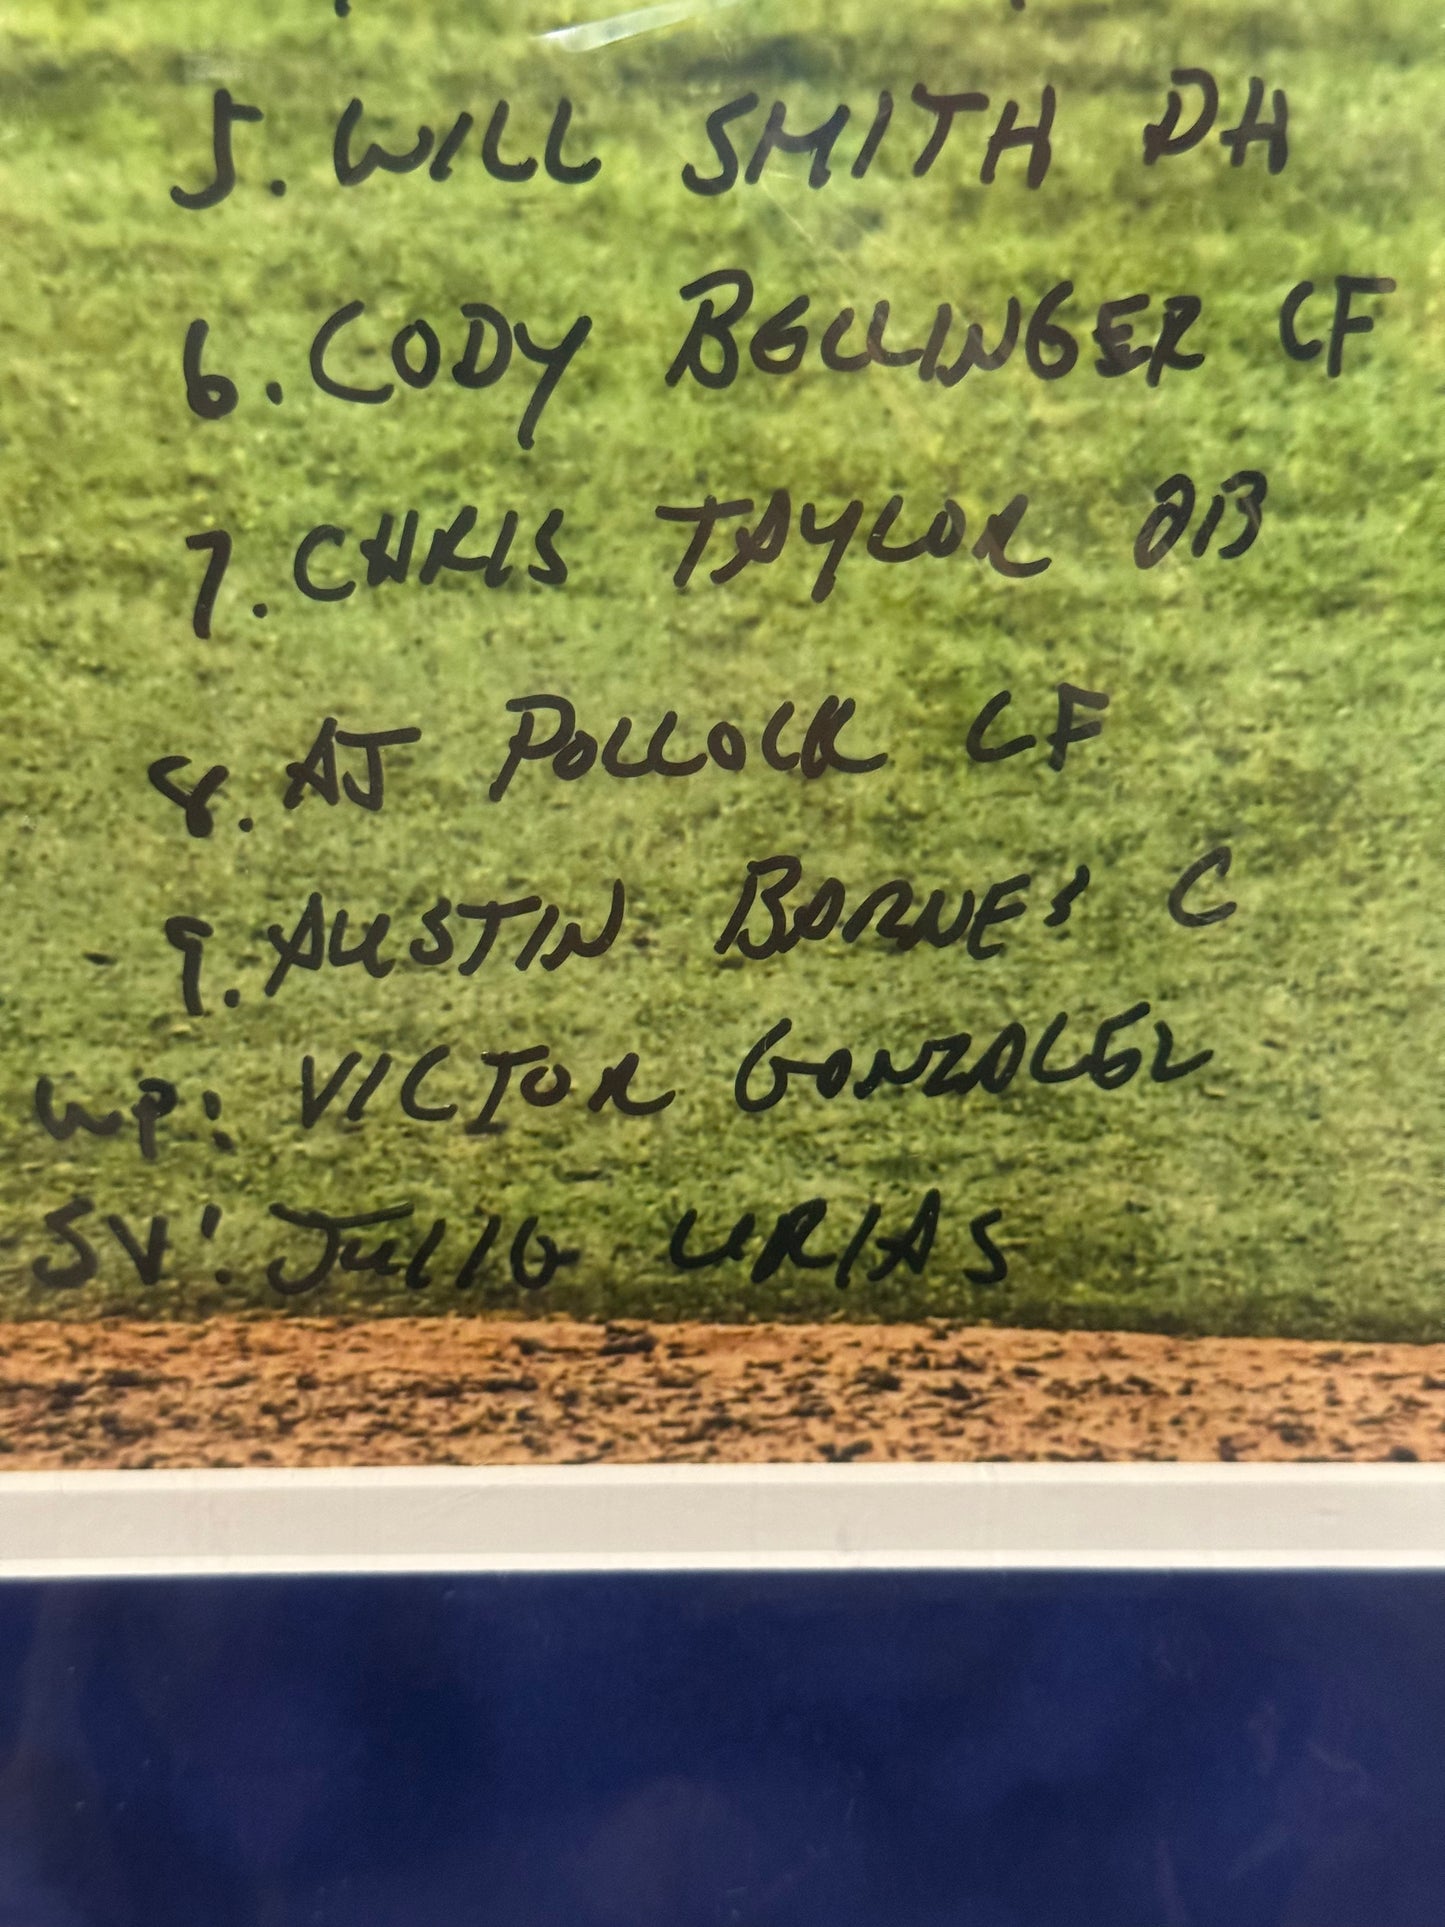 5. WILL SMITH DH
6. CODY BELLINGER CF
7. CHRIS TAYLOR 2B
8. AJ POLLOCK LF
9. AUSTIN BARNES C
WP: VICTOR GONZALEZ
SV: JULIO URIAS